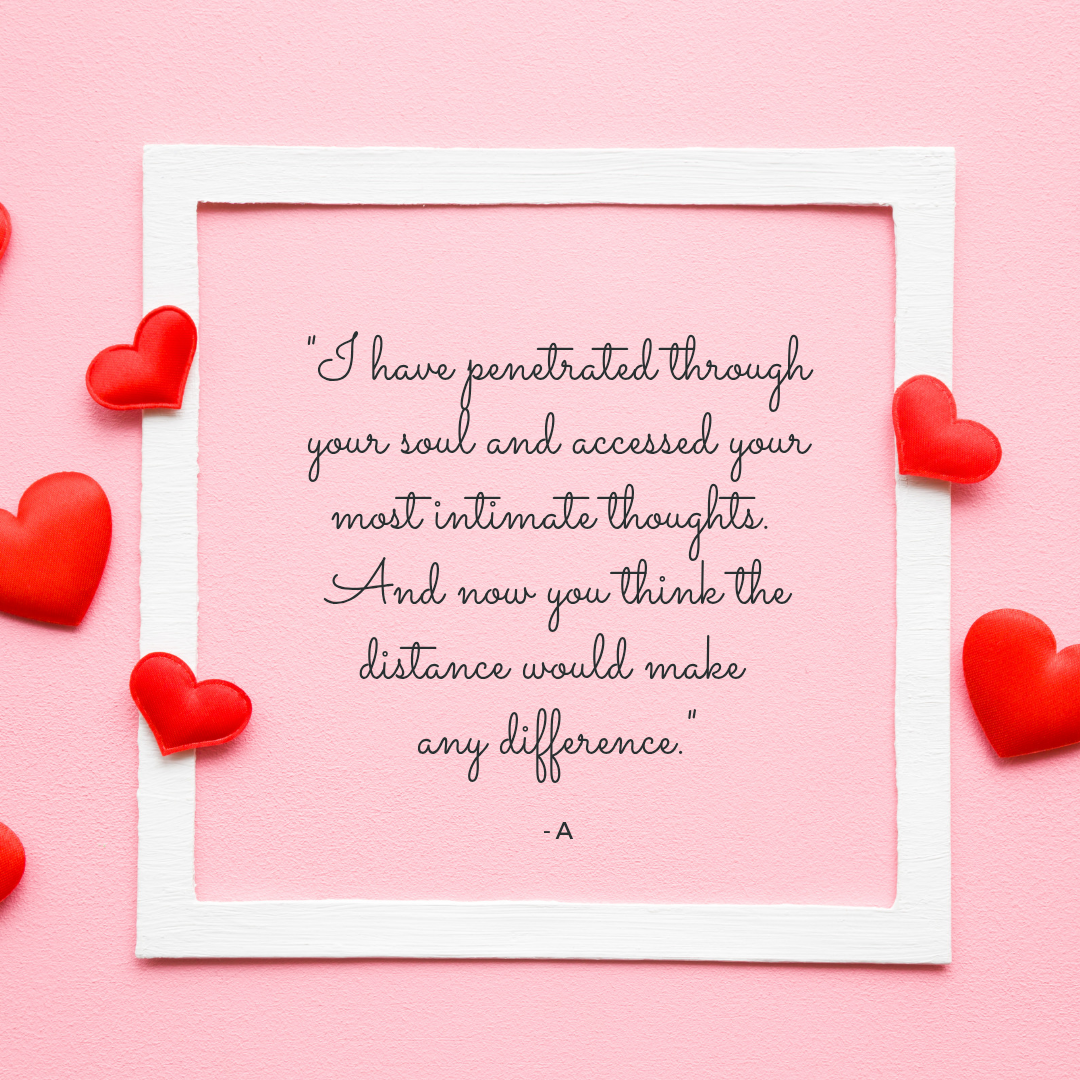 "I have penetrated through
your soul and accessed your
most intimate thoughts.
And now you think the
distance would make
any difference."
- A